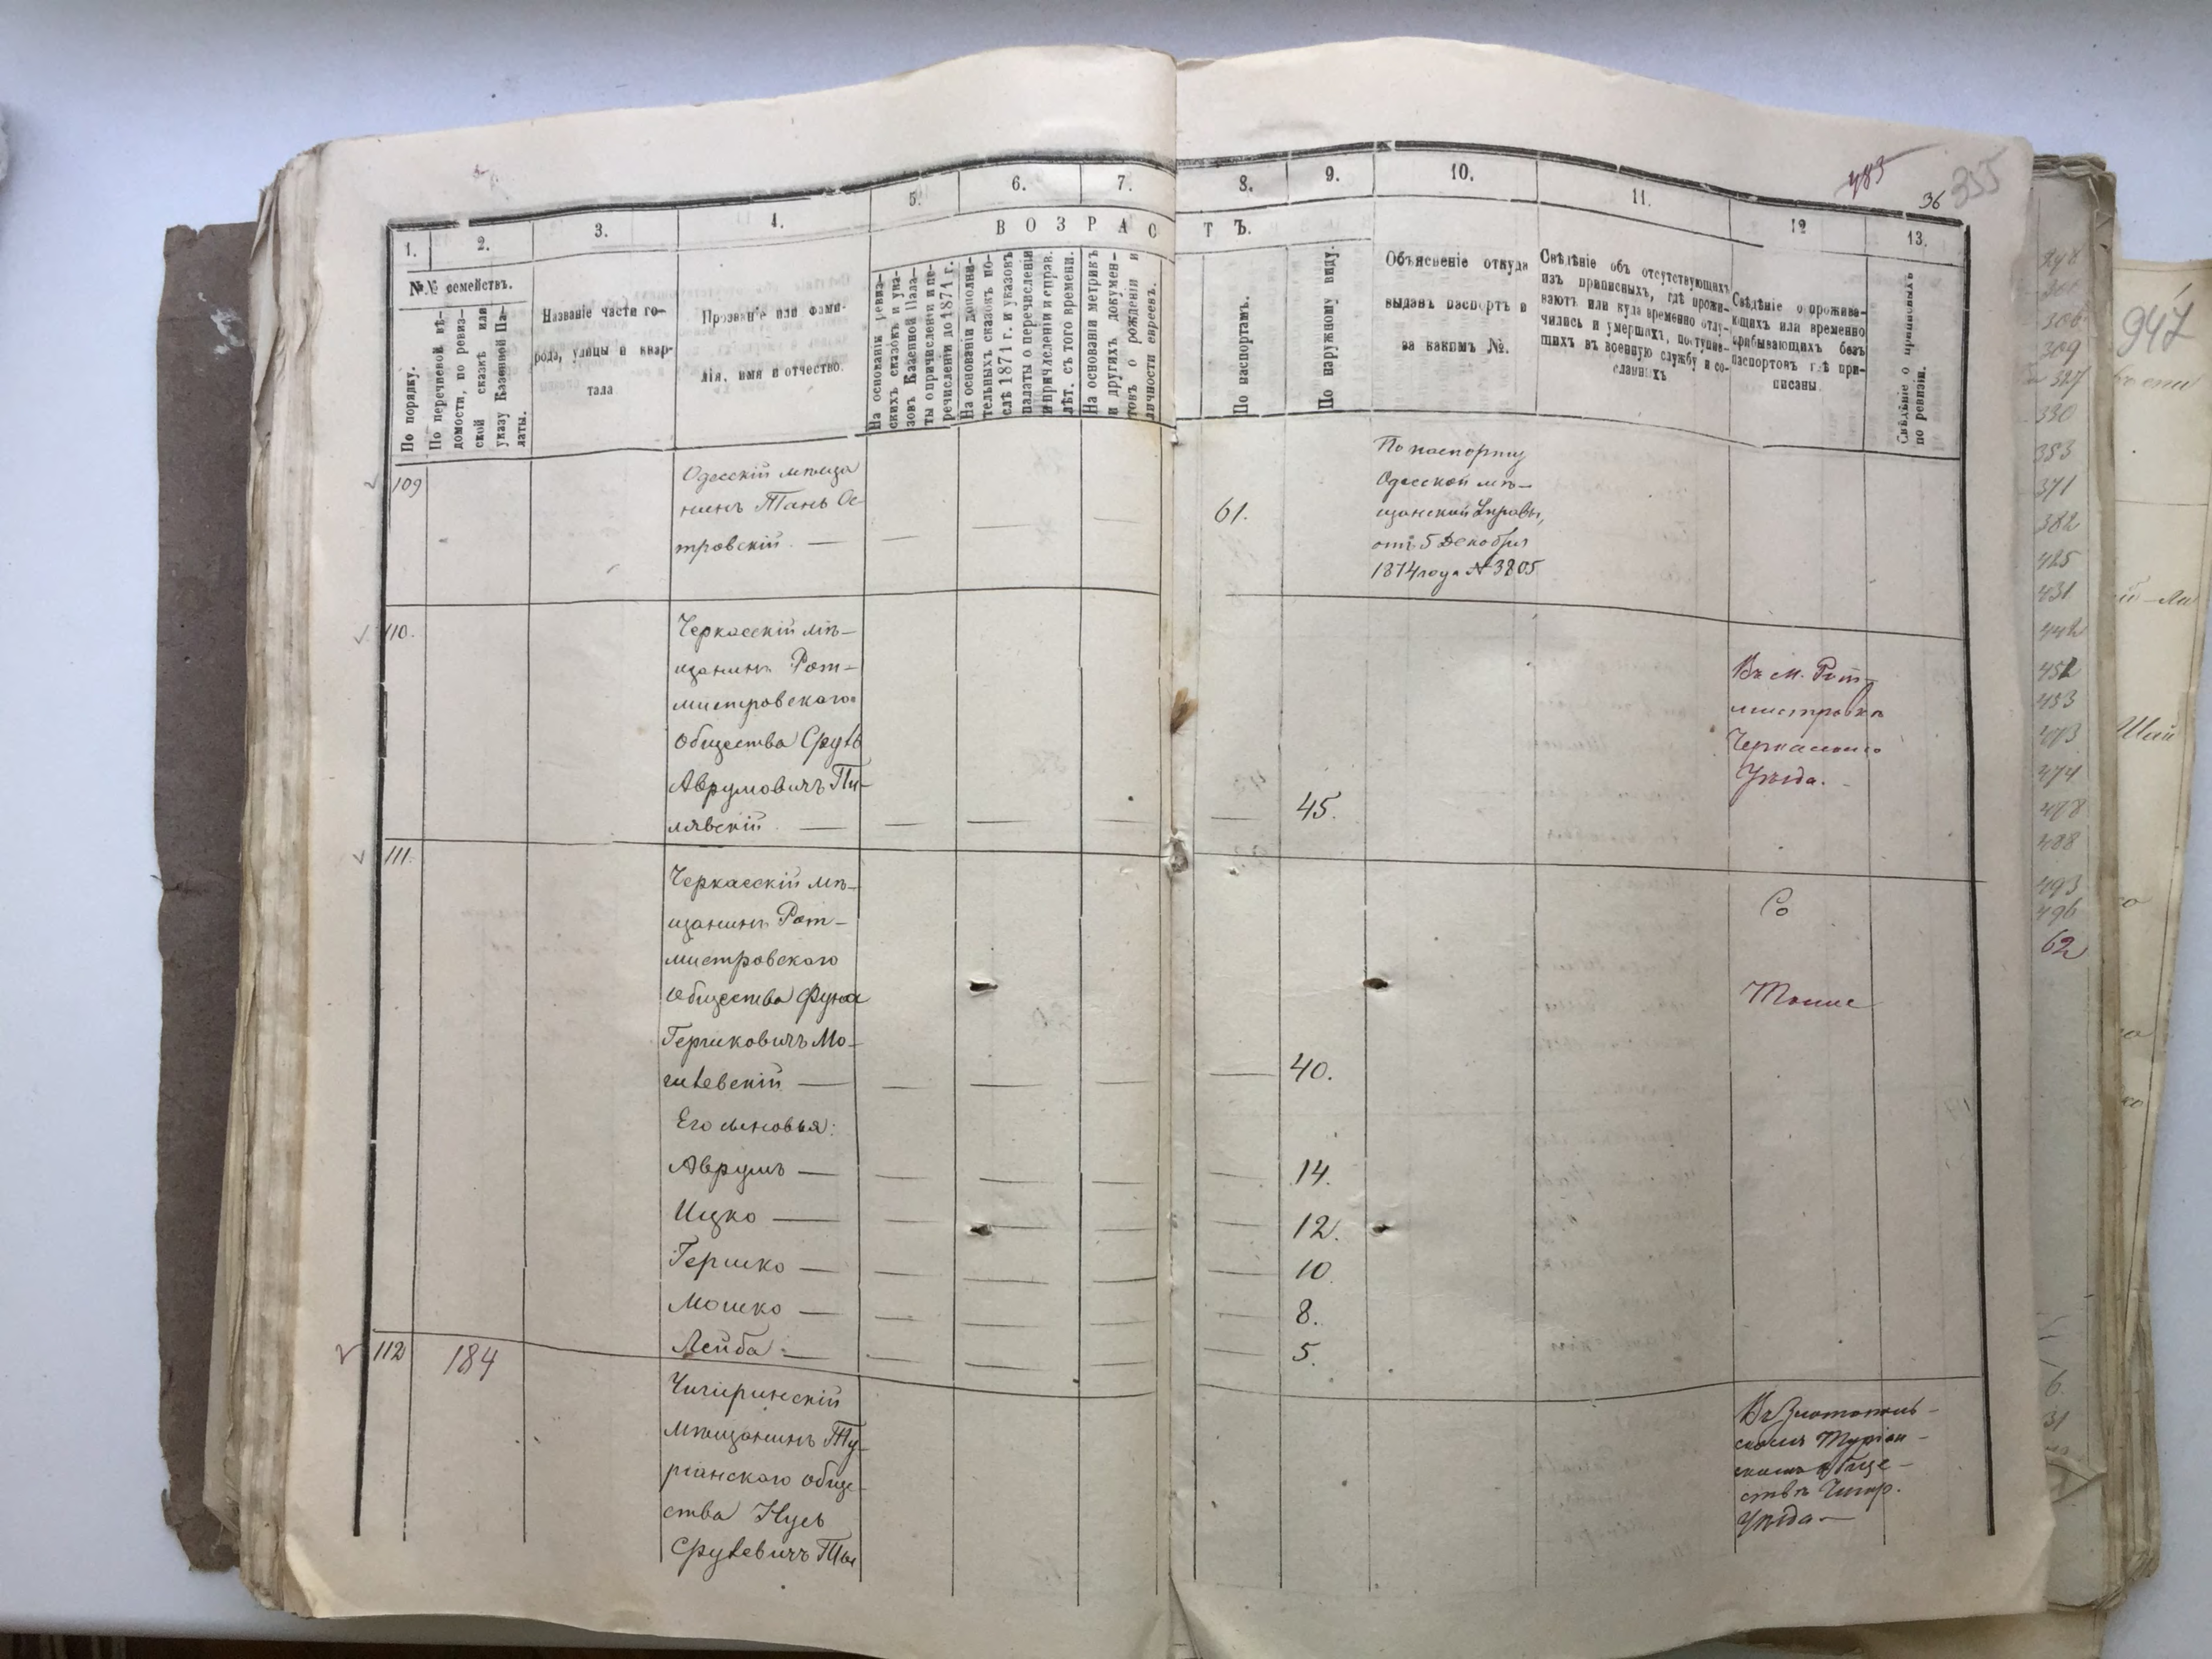 483
36
355
1.
2.
3.
4.
5.
6.
7.
8.
9.
10.
11.
12
13.
В О З Р А С Т Ъ.
№№ семействъ.
По порядку.
По перечневой вѣ-
домости, по ревиз-
ской сказкѣ или
указу Казенной Па-
латы.
Названіе части го-
рода, улицы и квар-
тала
Прозваніе или фами-
лія, имя и отчество.
На основаніи ревиз-
скихъ сказокъ и ука-
зовъ Казенной Пала-
ты о причисленіи и пе-
речисленіи до 1871 г.
На основаніи дополни-
тельныхъ сказокъ по-
слѣ 1871 г. и указовъ
палаты о перечисленіи
и причисленіи и справ.
лѣт. съ того времени.
На основаніи метрикъ
и другихъ докумен-
товъ о рожденіи и
личности евреевъ.
По паспортамъ.
По наружному виду.
Объясненіе откуда
выданъ паспортъ и
за какимъ №.
Свѣдѣніе объ отсутствующихъ
изъ приписныхъ, гдѣ прожи-
ваютъ или куда временно отлу-
чились и умершихъ, поступив-
шихъ въ военную службу и со-
сланныхъ
Свѣдѣніе о прожива-
ющихъ или временно
прибывающихъ безъ
паспортовъ гдѣ при-
писаны.
Свѣдѣніе о приписныхъ
по ревизіи.
109
Одесскій мѣща
нинъ Танъ Ос-
тровскій. —
61.
По паспорту
Одесской мѣ-
щанской Управы,
отъ 5 Декабря
1874 года № 3805
110.
Черкасскій мѣ-
щанинъ Рот-
мистровскаго
общества Сруль
Аврумовичъ Пи-
лявскій —
45.
Въ м. Рот-
мистровкѣ
Черкасскаго
Уѣзда. -
111.
Черкасскій мѣ-
щанинъ Рот-
мистровскаго
общества
Гершковичъ Мо-
гилевскій —
40.
Тоже
Его сыновья:
Аврумъ — 14.
Ицко — 12.
Гершко — 10.
Мошко — 8.
Лейба — 5.
112
184
Чигиринскій
мѣщанинъ Ту-
ріанскаго обще-
ства Нусь
Срулевичъ
Въ Златополь-
скомъ Туріан-
скомъ обще-
ствѣ Чигир.
Уѣзда —
330
383
371
382
425
431
473
474
478
488
493
496
62
6
31
947